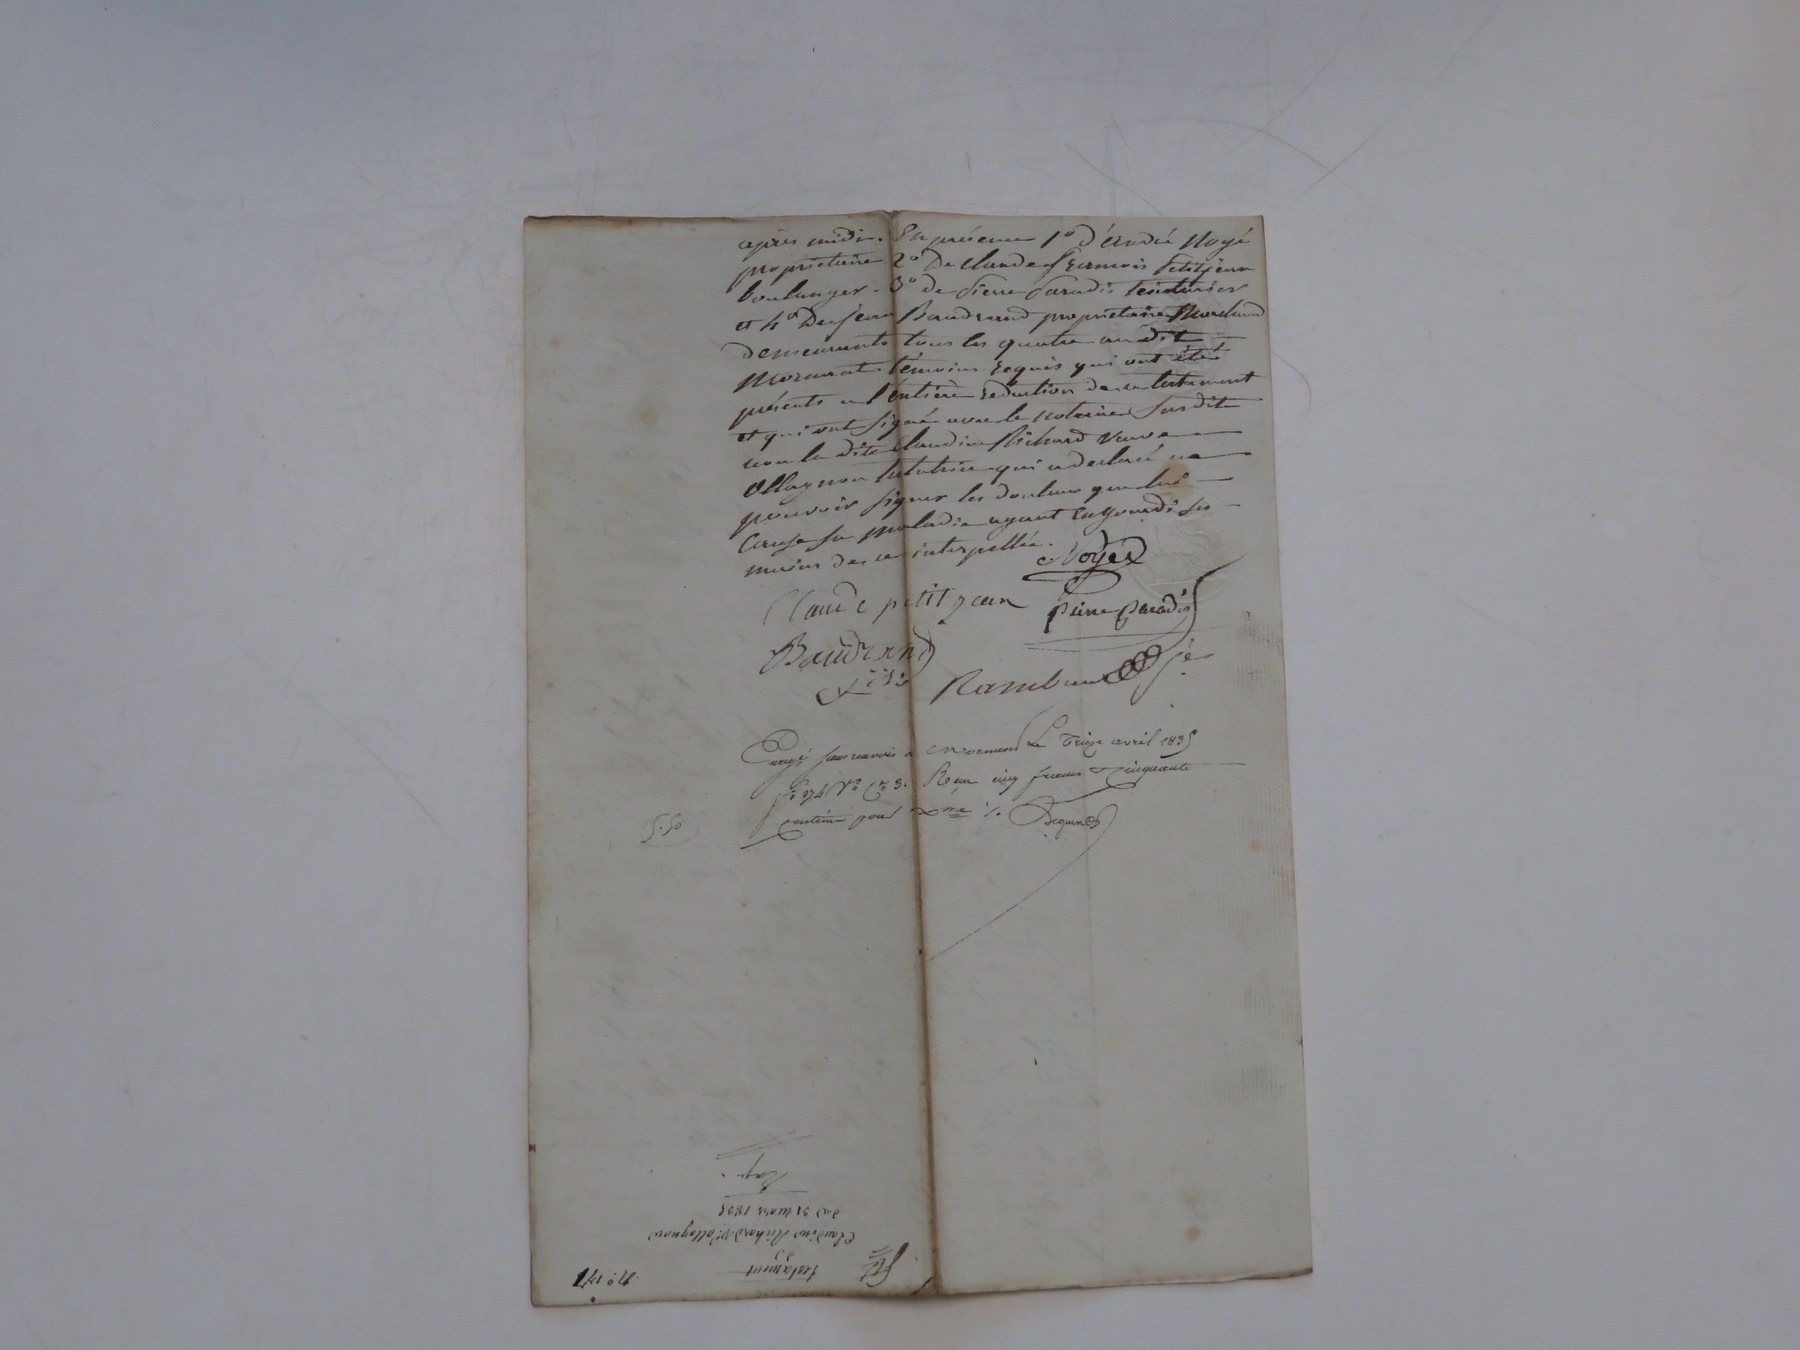 après midi. En présence 1° d'André Noyé
propriétaire 2° De Claude François Petitjean
boulanger. 3° de Pierre Paradis teinturier
et 4° De Jean Baudrand propriétaire Marchand
demeurants tous les quatre au dit
Mornant témoins requis qui ont étés
présents a l'entière rédaction de ce testament
et qui ont signé avec le notaire susdit
non la dite Claudine Richard veuve
Ollagnon testatrice qui a declaré ne
pouvoir signer les douleurs que lui
cause sa maladie ayant engourdi ses
mains de ce interpellée.
Noyé
Claude petit jean
Pierre Paradis
Baudrand
Rambaud
Enregé sans renvois a Mornant Le Treize avril 1835
f° 174 V° Cse 3. Reçu cinq francs cinquante
centime pour Dme
5.50
N° 171
testament
Claudine Richard Ve ollagnon
du 31 mars 1835